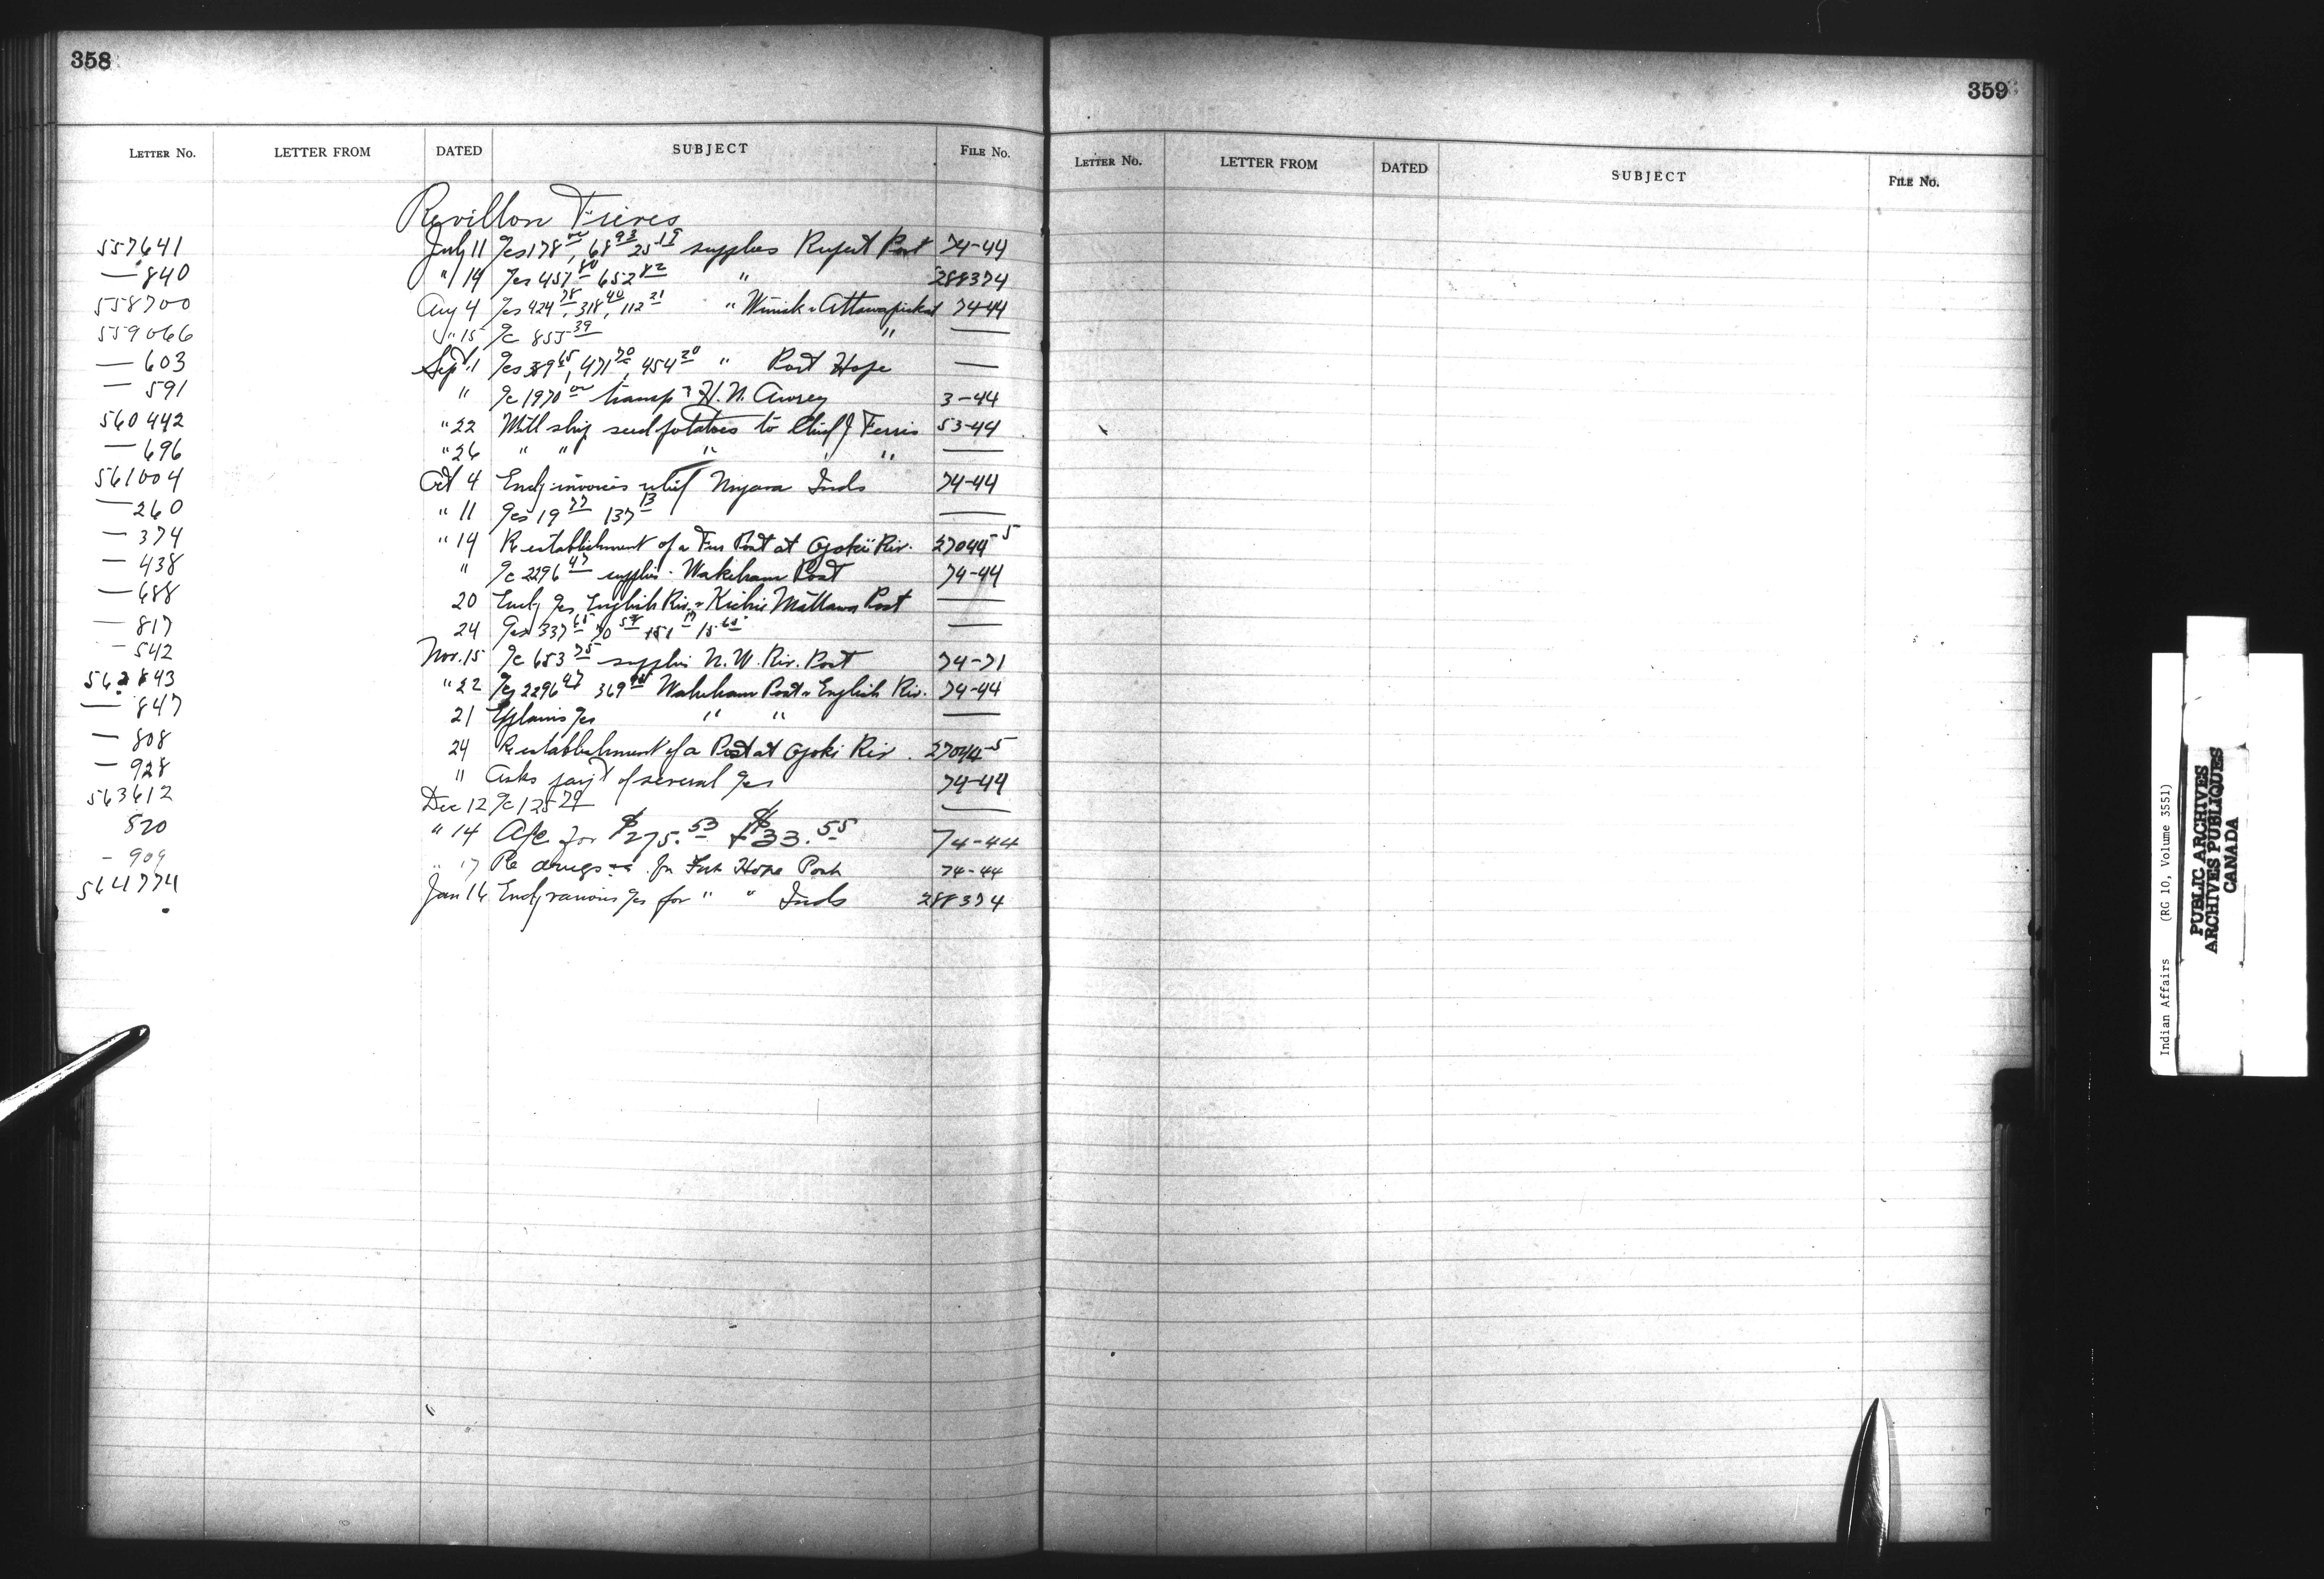 358
LETTER NO. LETTER FROM DATED SUBJECT FILE No.
Revillon Freres
557641 July 11 %cs 178 00, 68 93 25 19 supplies Rupert Post 74-44
— 840 " 14 %cs 457 80 652 82 " 288374
558700 Aug 4 %cs 424 78, 318 40, 112 21 " Winisk & Attawapiskat 74-44
559066 " 15 %c 855 39 " —
— 603 Sept 1 %cs 65, 471 70, 454 20 " Port Hope —
— 591 " %c 1970 00 transp H. N. Awrey 3-44
560442 " 22 Will ship seed potatoes to Chief J Ferris 53-44
— 696 " 26 " " " " —
561004 Oct 4 Encl invoices relief Inds 74-44
— 260 " 11 %cs 19 77 137 13 —
— 374 " 14 Re establishment of a Fur Post at Ogoki Riv. 27044-5
— 438 " %c 2296 47 supplies Wakeham Post 74-44
— 688 20 Encl %cs English Riv. & Kichie Mattawa Post —
— 817 24 %cs 337 65 70 15 —
— 542 Nov. 15 %c 653 75 supplies N. W. Riv. Post 74-71
562843 " 22 %cs 2296 47 369 Wakeham Post & English Riv. 74-44
— 847 21 Explains %cs " " —
— 808 24 Re establishment of a Post at Ogoki Riv. 27044-5
— 928 " Asks pay't of several %cs 74-44
563612 Dec 12 %c 125 79 —
820 " 14 A/c for $275.53 + $33.55 74-44
- 909 " 17 Re drugs for Fort Hope Post 74-44
564774 Jan 16 Encl various %cs for " " Inds 288374
359
LETTER NO. LETTER FROM DATED SUBJECT FILE No.
Indian Affairs (RG 10, Volume 3551)
PUBLIC ARCHIVES
ARCHIVES PUBLIQUES
CANADA